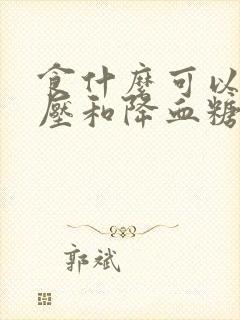 食什麼可以
壓和降血糖
郭斌